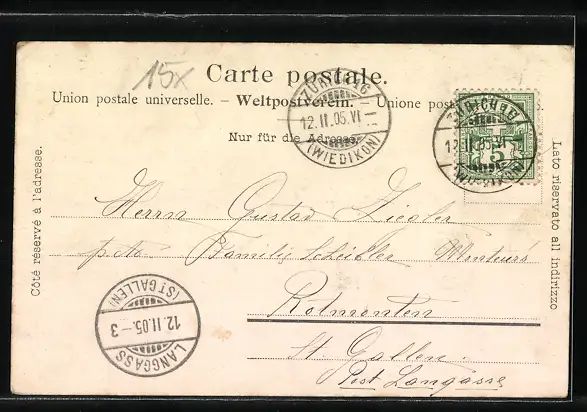 15x
Carte postale.
Union postale universelle. – Weltpostverein. – Unione post
Nur für die Adresse.
ZÜRICH 6
12.II.05.VI
(WIEDIKON)
ZÜRICH 6
12.II.05.VI
(WIEDIKON)
5
Côté réservé à l'adresse.
Lato riservato all indirizzo
Herrn Gustav Ziegler
p. Familie Scheibler Monteurs
Rotmonten
St. Gallen.
Post Langasse
(ST. GALLEN)
12.II.05.-3
LANGGASS